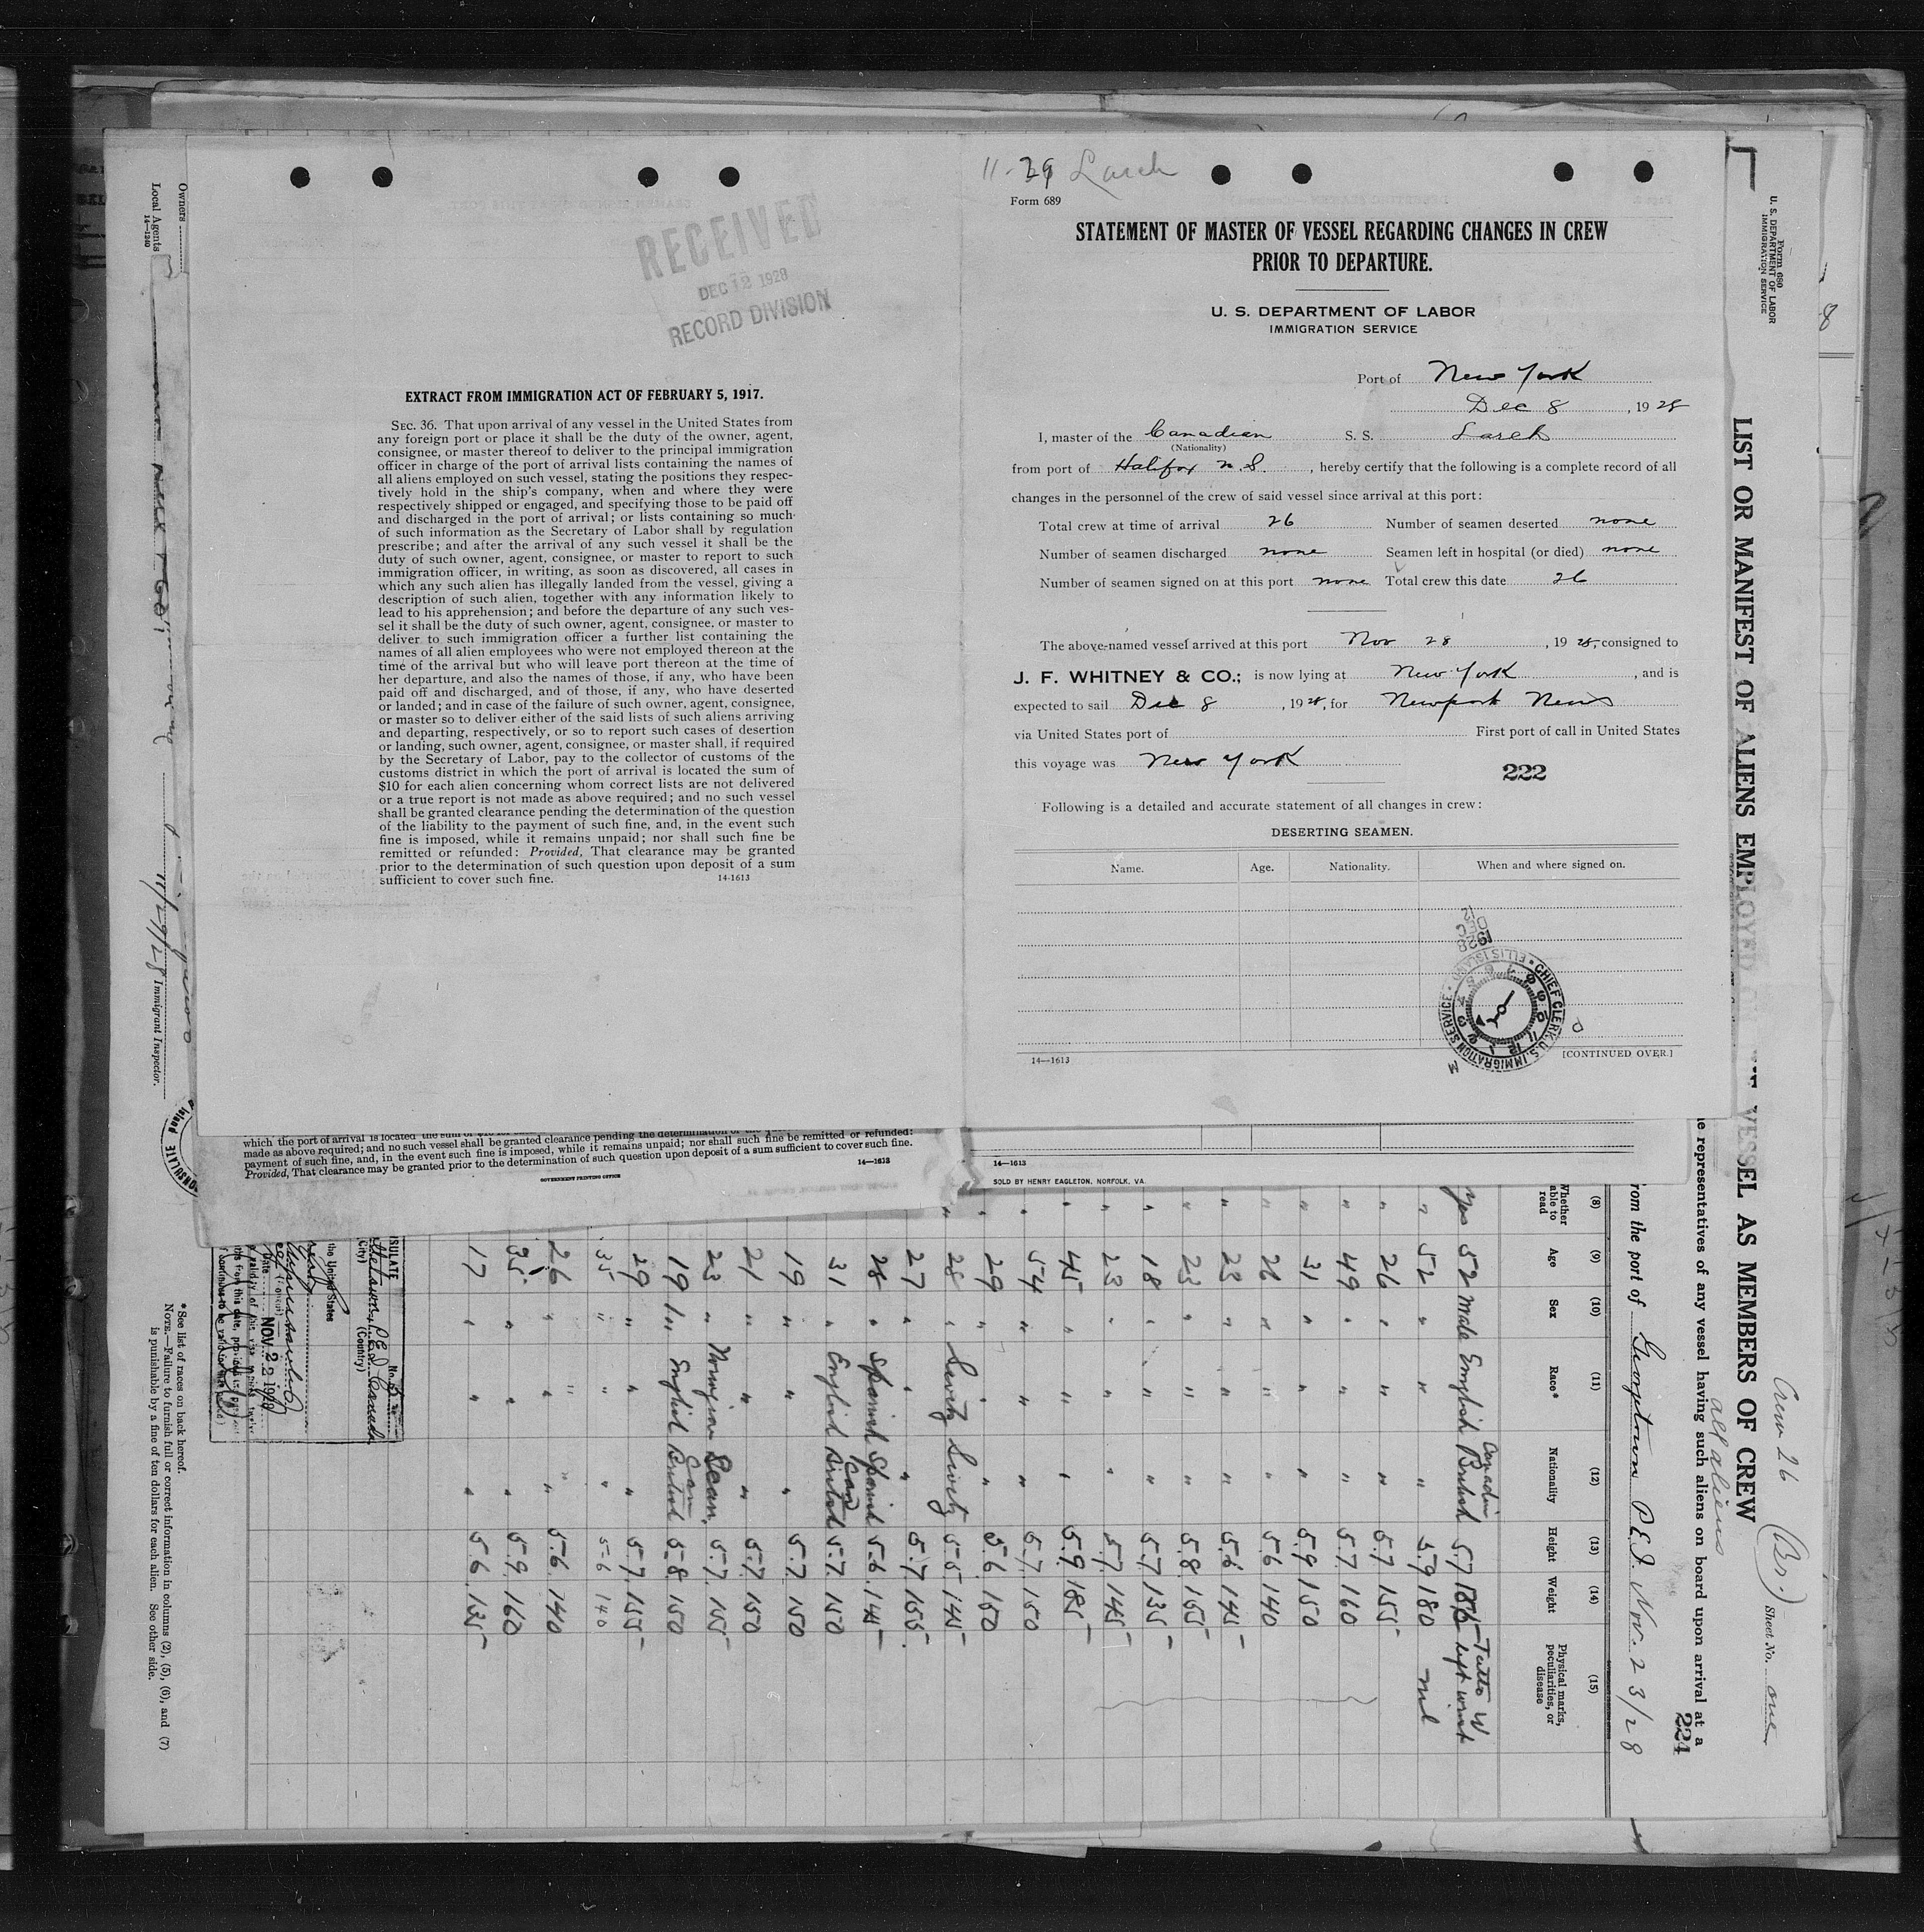 RECEIVED
DEC 12 1928
RECORD DIVISION
EXTRACT FROM IMMIGRATION ACT OF FEBRUARY 5, 1917.
SEC. 36. That upon arrival of any vessel in the United States from
any foreign port or place it shall be the duty of the owner, agent,
consignee, or master thereof to deliver to the principal immigration
officer in charge of the port of arrival lists containing the names of
all aliens employed on such vessel, stating the positions they respec-
tively hold in the ship's company, when and where they were
respectively shipped or engaged, and specifying those to be paid off
and discharged in the port of arrival; or lists containing so much
of such information as the Secretary of Labor shall by regulation
prescribe; and after the arrival of any such vessel it shall be the
duty of such owner, agent, consignee, or master to report to such
immigration officer, in writing, as soon as discovered, all cases in
which any such alien has illegally landed from the vessel, giving a
description of such alien, together with any information likely to
lead to his apprehension; and before the departure of any such ves-
sel it shall be the duty of such owner, agent, consignee. or master to
deliver to such immigration officer a further list containing the
names of all alien employees who were not employed thereon at the
time of the arrival but who will leave port thereon at the time of
her departure, and also the names of those, if any, who have been
paid off and discharged, and of those, if any, who have deserted
or landed; and in case of the failure of such owner, agent, consignee,
or master so to deliver either of the said lists of such aliens arriving
and departing, respectively, or so to report such cases of desertion
or landing, such owner, agent, consignee, or master shall, if required
by the Secretary of Labor, pay to the collector of customs of the
customs district in which the port of arrival is located the sum of
$10 for each alien concerning whom correct lists are not delivered
or a true report is not made as above required; and no such vessel
shall be granted clearance pending the determination of the question
of the liability to the payment of such fine, and, in the event such
fine is imposed, while it remains unpaid; nor shall such fine be
remitted or refunded: Provided, That clearance may be granted
prior to the determination of such question upon deposit of a sum
sufficient to cover such fine. 14-1613
11-29 Larch
Form 689
STATEMENT OF MASTER OF VESSEL REGARDING CHANGES IN CREW
PRIOR TO DEPARTURE.
U. S. DEPARTMENT OF LABOR
IMMIGRATION SERVICE
Port of New York
Dec 8, 1928
I, master of the Canadian S. S. Larch
(Nationality)
from port of Halifax N.S., hereby certify that the following is a complete record of all
changes in the personnel of the crew of said vessel since arrival at this port:
Total crew at time of arrival 26 Number of seamen deserted none
Number of seamen discharged none Seamen left in hospital (or died) none
Number of seamen signed on at this port none Total crew this date 26
The above-named vessel arrived at this port Nov 28, 1928, consigned to
J. F. WHITNEY & CO.; is now lying at New York, and is
expected to sail Dec 8, 1928, for Newport News
via United States port of First port of call in United States
this voyage was New York
222
Following is a detailed and accurate statement of all changes in crew:
DESERTING SEAMEN.
Name. Age. Nationality. When and where signed on.
1928
CHIEF CLERK, U.S. IMMIGRATION SERVICE • ELLIS ISLAND •
14—1613 [CONTINUED OVER.]
made as above required; and no such vessel shall be granted clearance pending the determination
payment of such fine, and, in the event such fine is imposed, while it remains unpaid; nor shall such fine be remitted or refunded:
Provided, That clearance may be granted prior to the determination of such question upon deposit of a sum sufficient to cover such fine. 14—1613
GOVERNMENT PRINTING OFFICE
14—1613
SOLD BY HENRY EAGLETON, NORFOLK, VA.
Form 680
U. S. DEPARTMENT OF LABOR
IMMIGRATION SERVICE
Crew 26 (Br.) Sheet No. one
LIST OR MANIFEST OF ALIENS EMPLOYED VESSEL AS MEMBERS OF CREW
all aliens
representatives of any vessel having such aliens on board upon arrival at a
224
from the port of Georgetown P.E.I. Nov. 23/28
(8) (9) (10) (11) (12) (13) (14) (15)
Whether able to read Age Sex Race* Nationality Height Weight Physical marks, peculiarities, or disease
Canadian
yes 52 Male English British 5.7 Tatto W left wrist
" 52 " " " 5.9 180 nil
" 26 " " " 5.7 155
" 49 " " " 5.7 160
" 31 " " " 5.9 150
" 26 " " " 5.6 140
" 23 " " " 5.6 145
" 23 " " " 5.8 165
" 18 " " " 5.7 135
" 23 " " " 5.7 145
" 45 " " " 5.9 185
" 54 " " " 5.7 150
" 29 " " " 5.6 150
" 28 " 5.5 145
27 " " " 5.7 155
28 " Spanish Spanish 5.6 145
31 " English Can British 5.7 150
19 " " " 5.7 150
21 " " " 5.7 150
23 " Norwegian Scan. 5.7 155
19 English Can British 5.8 150
29 " " " 5.7 155
35 " " " 5.6 140
26 " " " 5.6 140
35 " " " 5.9 160
17 " " " 5.6 135
(City) (Country)
P.E.I. Canada
the United States
Date NOV 22 1928
* See list of races on back hereof.
NOTE.—Failure to furnish full or correct information in columns (2), (5), (6), and (7)
is punishable by a fine of ten dollars for each alien. See other side.
Owners
Local Agents
14—1240
11/29/28 Immigrant Inspector.